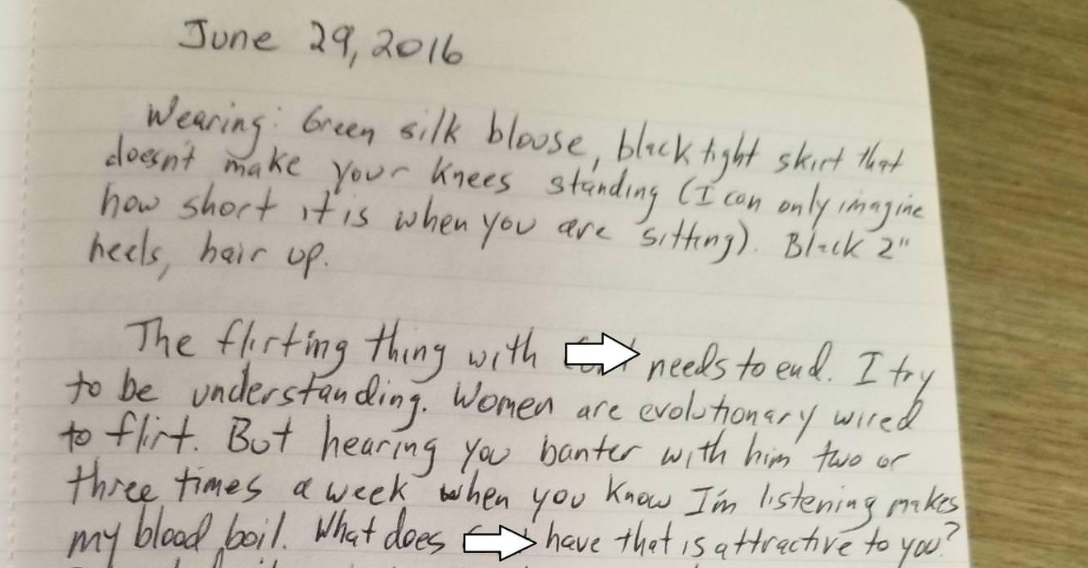 June 29, 2016
Wearing: Green silk blouse, black tight skirt that
doesn't make your knees standing (I can only imagine
how short it is when you are sitting). Black 2"
heels, hair up.
The flirting thing with needs to end. I try
to be understanding. Women are evolutionary wired
to flirt. But hearing you banter with him two or
three times a week when you know I'm listening makes
my blood boil. What does have that is attractive to you?